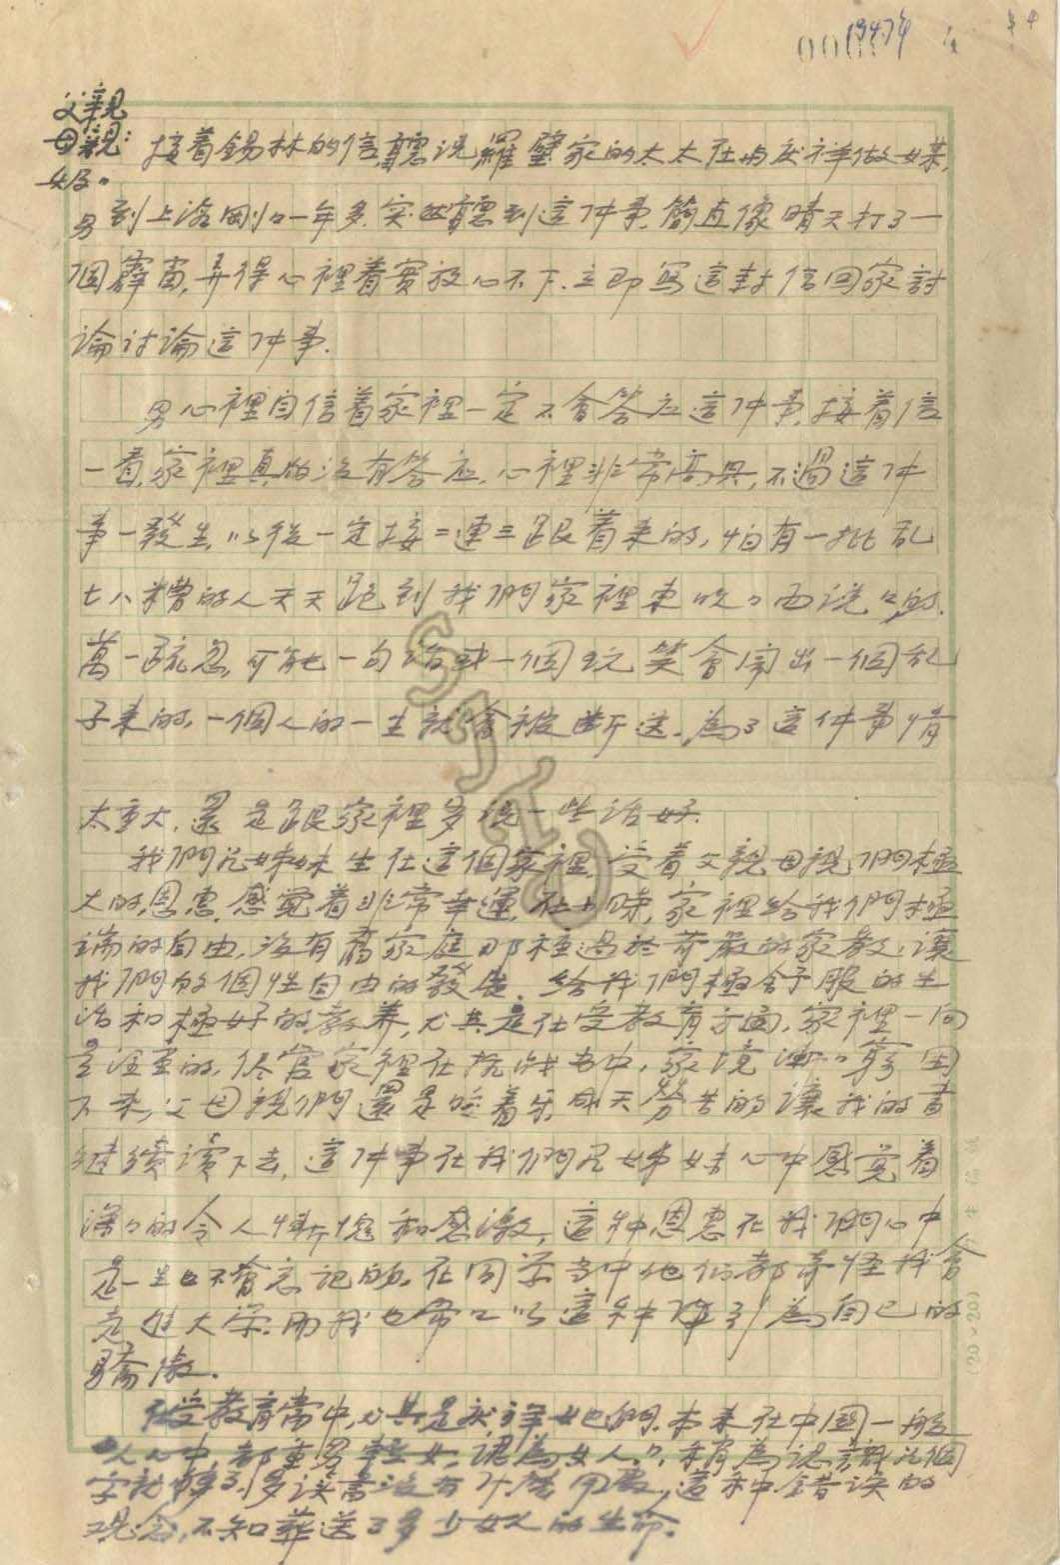 1947年
父親
母親：接着錫林的信，聽说羅璧家的太太在与庆祥做媒，
好。
男到上海剛〃一年多，突然聽到這件事，簡直像晴天打了一
個霹雷，弄得心裡着實放心不下，立即寫這封信回家討
論討論這件事。
男心裡自信着家裡一定不會答应這件事，接着信
一看，家裡真的没有答应，心裡非常高興，不過這件
事一發生，以後一定接二連三跟着来的，怕有一批乱
七八糟的人天天跑到我們家裡東吹〃西说〃的，
萬一疏忽，可能一句话或一個玩笑會闹出一個乱
子来的，一個人的一生就會被断送。為了這件事情
太重大，還是跟家裡多说一些话好。
我們兄姊妹生在這個家裡，受着父親母親們極
大的恩惠，感觉着非常幸運，在小時，家裡給我們極
端的自由，没有舊家庭那種過於苛嚴的家教，讓
我們的個性自由的發展，給我們極舒服的生
活和極好的教养，尤其是在受教育方面，家裡一向
是注重的，尽管家裡在抗战当中，家境漸〃窮困
下来，父母親們還是成天勞苦的讓我的書
継續讀下去，這件事在我們兄姊妹心中感覚着
深〃的令人慚愧和感激，這种恩惠在我們心中
是一生也不會忘记的。在同学当中他们都奇怪我會
進大学，而我也常〃以這种引為自己的
驕傲。
在受教育當中，尤其是庆祥她們，本来在中國一般
人心中，都重男輕女，認為女人〃，稍為認識几個
字就够了，多读書没有什麽用處，這种錯误的
观念，不知葬送了多少女人的生命。
(20×20)
SJTU